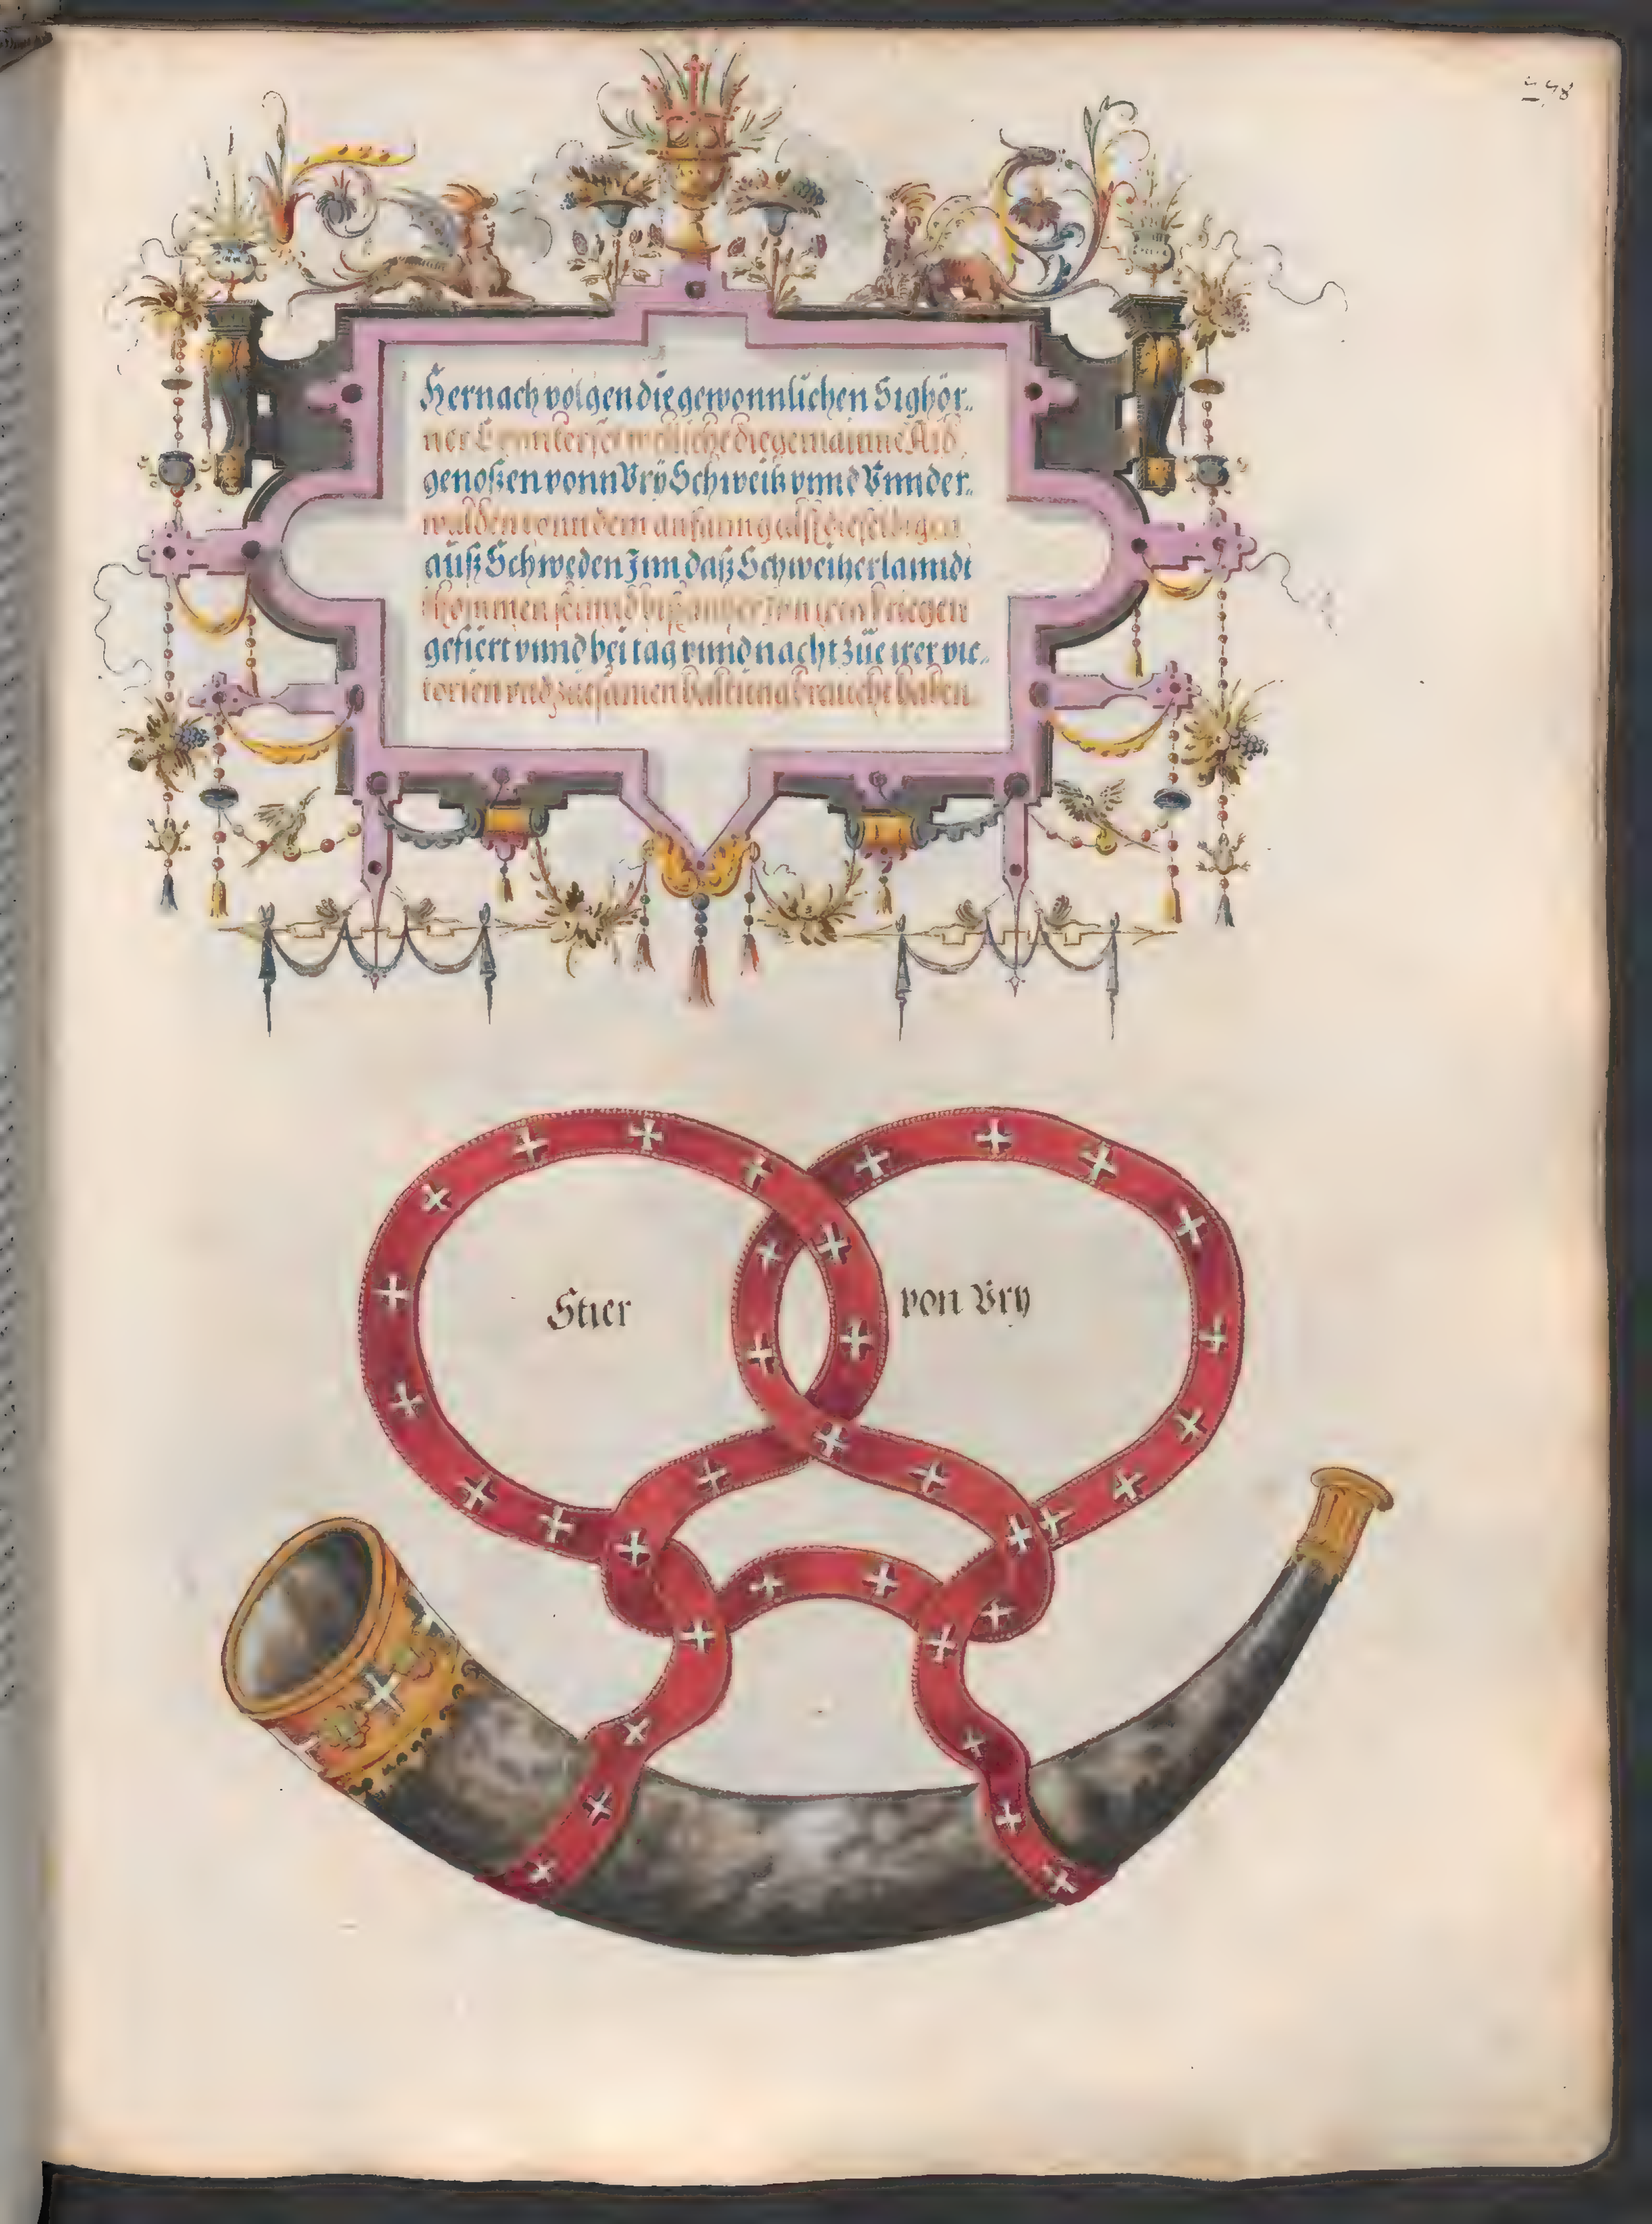 Hernach volgen die gewonnlichen Sighör-
ner die gemainne Aid
genoßen vonn Vry Schweitz vnnd Vnnder-
walden vonn dem anfanng
auß Schweden Jnn daß Schweitzerlanndt
khommen seinnd biß anher
gefiert vnnd bei tag vnnd nacht züe irer vic-
torien vnd züesamen haltung braucht haben
Stier
von Vry